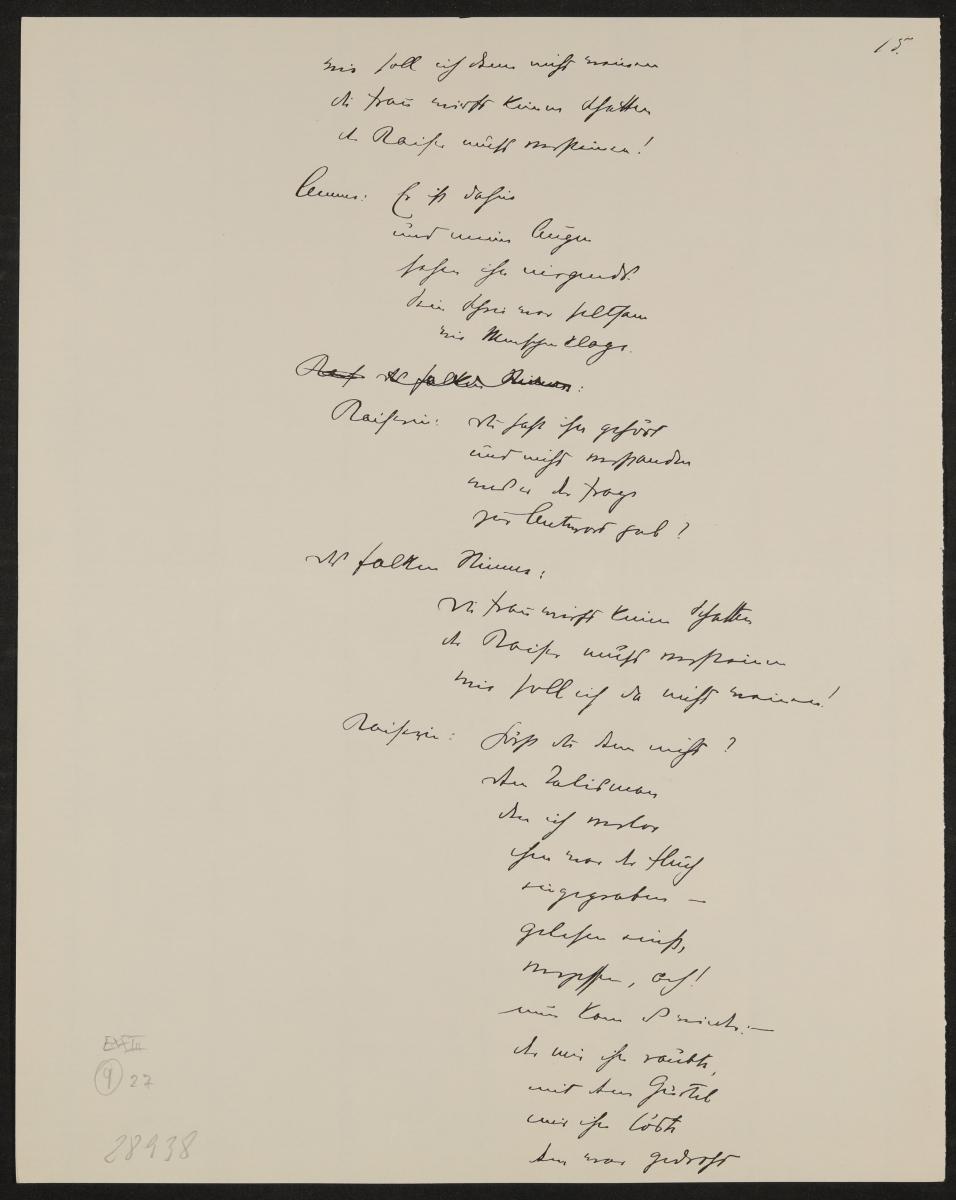 15.
wie soll ich denn nicht weinen
die Frau wirft keinen Schatten
der Kaiser muß versteinen!
Amme: Er ist dahin
und meine Augen
sahen ihn nirgends.
Sein Schrei war seltsam
wie Menschenklage.
des Falken Stimme:
Kaiserin: du hast ihn gehört
und nicht verstanden
der Frage
zur Antwort gab?
des Falken Stimme:
die Frau wirft keinen Schatten
der Kaiser muß versteinen
wie soll ich da nicht weinen!
Kaiserin: Hörst du denn nicht?
den Talisman
den ich verlor
ihm war der Fluch
eingegraben —
gelesen einst,
vergessen, ach!
nun kam es wieder: —
der mir ihn raubte,
mit dem Gürtel
mir ihn löste
dem war gedroht
9 27
28938